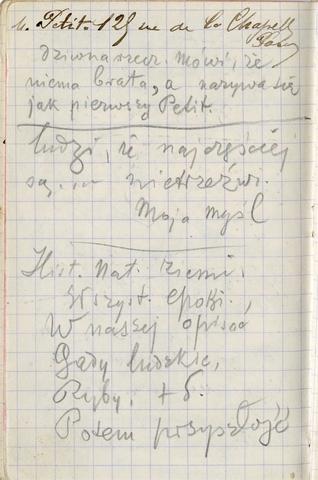 M. Petit. 125 rue de La Chapelle
Paris
Dziwna rzecz. Mówi, że
niema brata, a nazywa się
jak pierwszy Petit.
ludzi, że najczęściej
są... nietrzeźwi.
Moja myśl
Hist. Nat. ziemi.
Wszyst. epoki.,
W naszej opisać
Gady ludzkie,
Ryby. + b.
Potem przyszłość